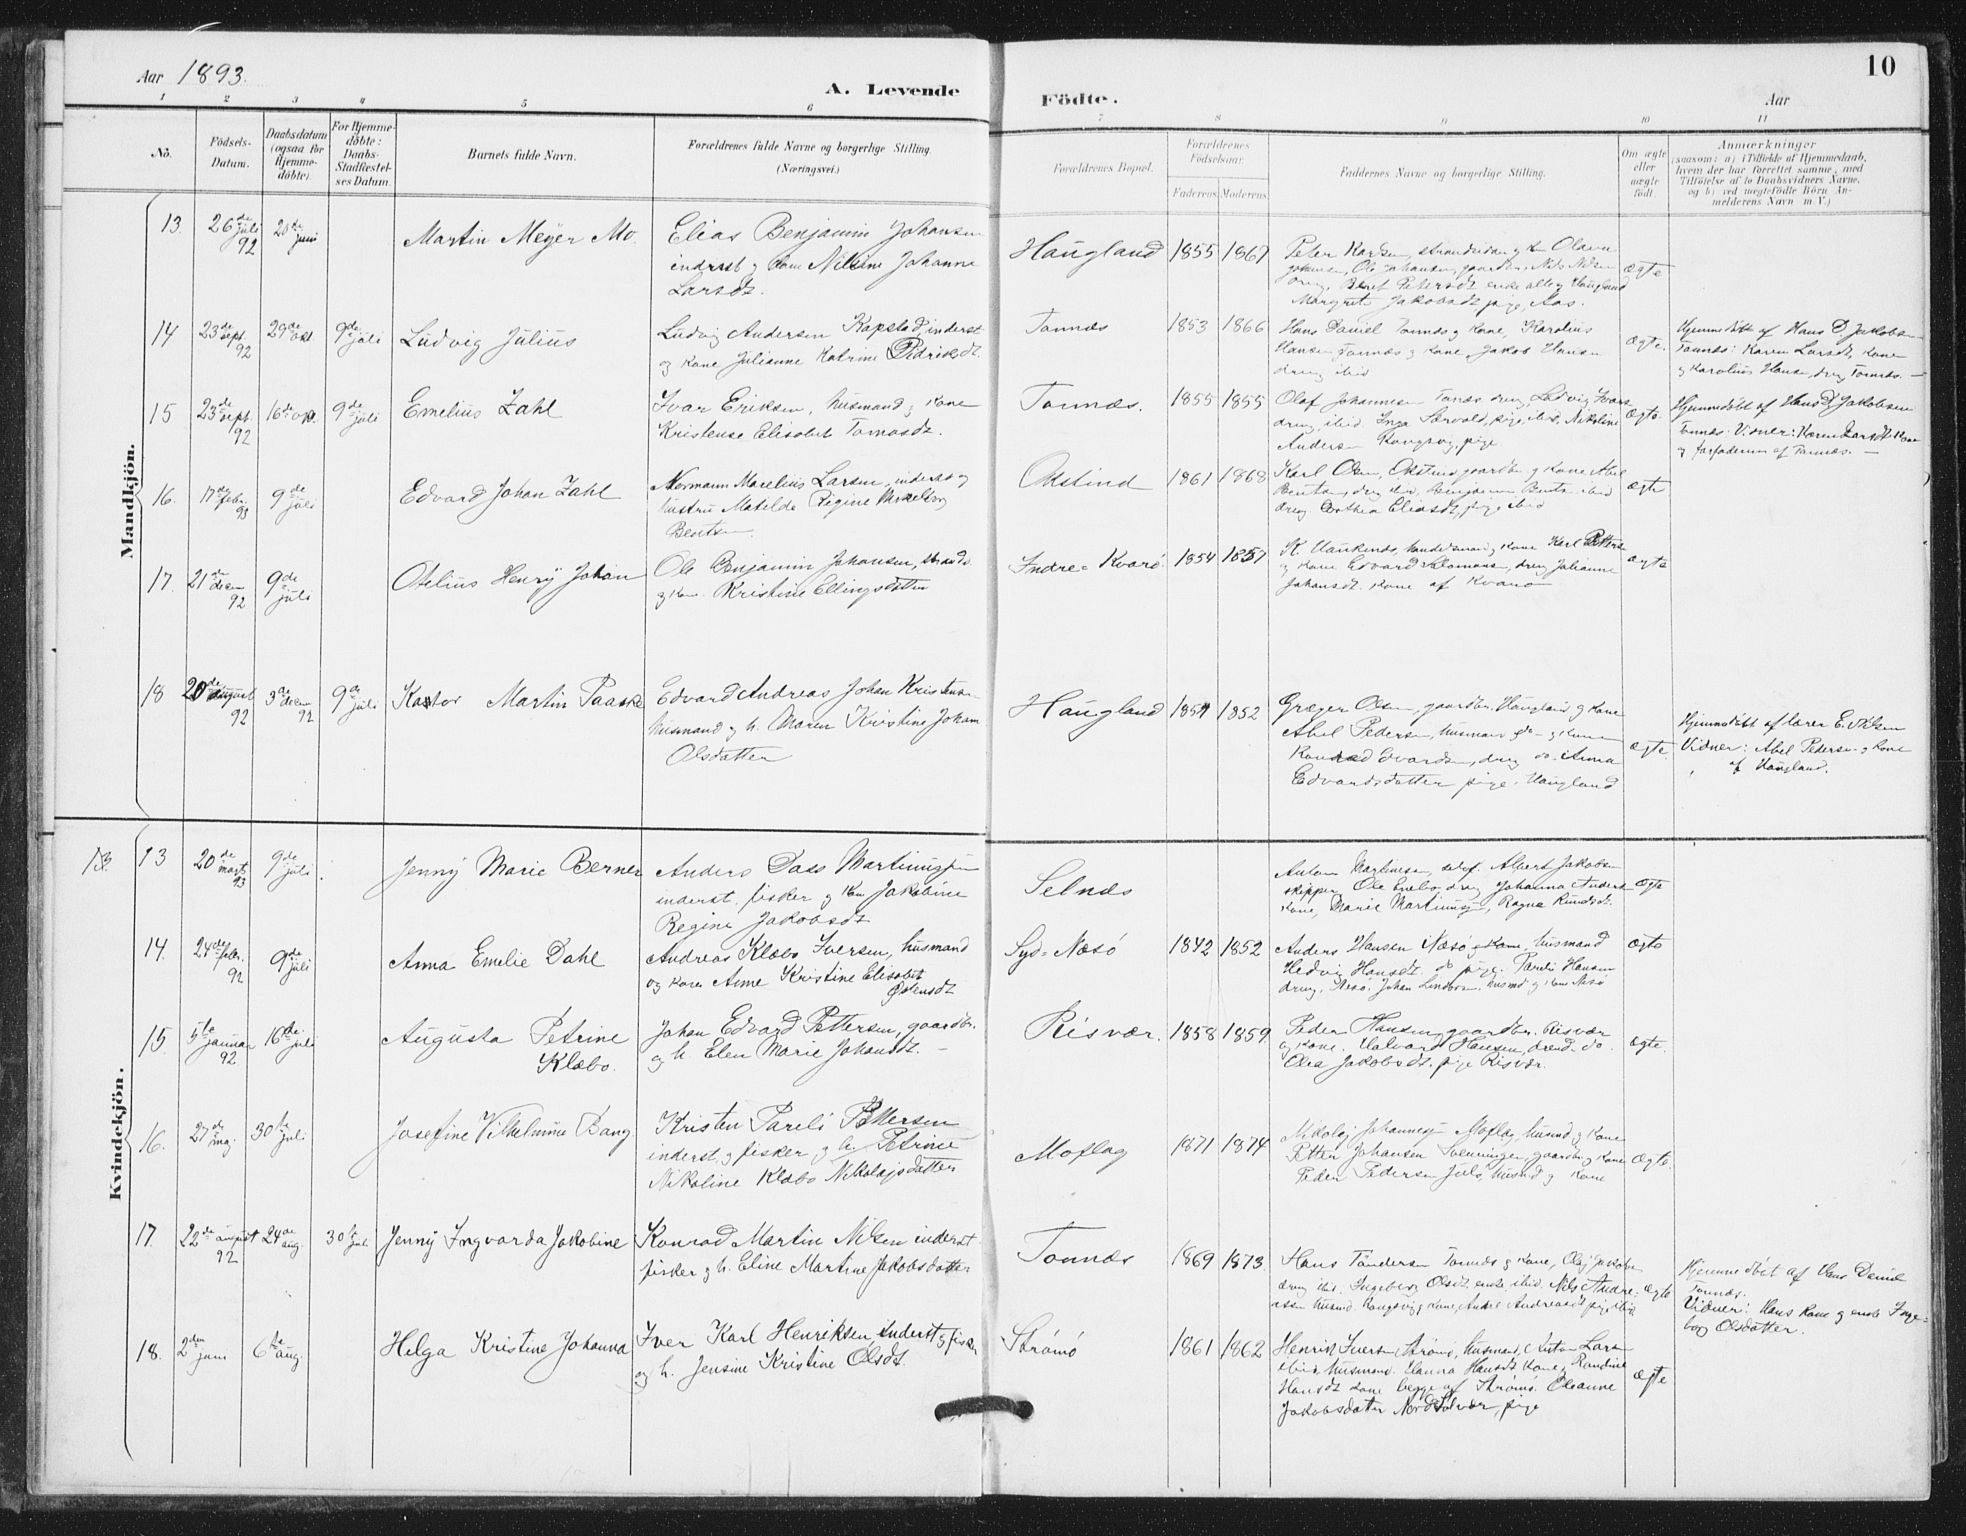 Aar 1893.
A. Levende
Födte.
Aar
10
1 2 3 4 5 6 7 8 9 10 11
No.
Födsels-
Datum.
Daabsdatum
(ogsaa for
Hjemme-
döbte).
For Hjemme-
döbte:
Daabs-
Stadfæstel-
ses Datum.
Barnets fulde Navn.
Forældrenes fulde Navne og borgerlige Stilling.
(Næringsvei.)
Forældrenes Bopæl.
Forældrenes
Födselsaar.
Faderens. Moderens.
Faddernes Navne og borgerlige Stilling.
Om ægte
eller
uægte
födt.
Anmærkninger
(saasom: a) i Tilfælde af Hjemmedaab,
hvem der har forrettet samme, med
Tilföielse af to Daabsvidners Navne,
og b) ved uægtefödte Börn An-
melderens Navn m. V.)
Mandkjön.
13. 26de juli 92 20de juni Martin Meyer Mo.
Elias Benjamin Johansen
inderst og kone Nilsine Johanne
Larsdt.
Haugland 1855 1867
Margrete Jakobsdt pige, Aas.
ægte
14 23de sept. 92 29de okt. 9de juli Ludvig Julius
Ludvig Andersen Kapstad, inderst
og kone Julianne Katrine Pedriksdt.
Tonnæs 1853 1866
Hans Daniel Tonnæs og kone, Karolius
Hansen Tonnæs og kone, Jakob Hansen
dreng ibid
ægte.
Hjemmedöbt af Hans D. Jakobsen
Tonnæs: Karen Larsdt, kone
og Karolius Hansen, dreng Tonnæs. —
15 23de sept. 92 16de okt. 9de juli Emelius Zahl
Ivar Eriksen, husmand og kone
Kristense Elisabet Tomasdt.
Tonnæs. 1855 1855
Olaf Johannesen Tonæs dreng, Ludvig Ivars
Andersen Kongsvig, pige
ægte.
Hjemmedöbt af Hans D. Jakobsen
Tonnæs. Vidner: Karen Larsdt kone
og farfaderen af Tonnæs. —
16. 17de febr. 93 9de juli Edvard Johan Zahl
Normann Marelius Larsen, inderst og
hustru Matilde Regine Mikelborg
Bentsen
Okstind 1861 1868
dreng Dorthea Eliasdt, pige ibid
ægte
17. 21de decem 92 9de juli Otelius Henry Johan
Ole Benjamin Johansen, strands.
og kone. Kristine Ellingsdatter
Indre-Kvarö 1854 1857
og kone Edvard Salomonsen, dreng Johanne
Johansdt. kone af Kvarö
ægte
18 20de august 92 3de decem 92 9de juli Kastor Martin Paaske
Edvard Andreas Johan Kristensen
husmand og h. Maren Kristine Johan
Olsdatter
Haugland 1854 1852
Græger Olsen, gaardbr. Haugland og kone
Abel Pedersen, husmand do og kone
Konrad Edvardsen, dreng do. Anna
Edvardsdatter pige, Haugland
ægte.
Hjemmedöbt af lærer E. Nilsen
Vidner: Abel Pedersen og kone
af Haugland.
Kvindekjön.
13. 13 20de marts 93 9de juli Jenny Marie Berner
Anders Dass Martinussen
inderst, fisker og kone Jakobine
Regine Jakobsdt
Selnæs
Anton Martinsen, selvf. Albert Jakobsen
skipper, Ole Enebo, dreng Johanna Anders
kone, Marie Martinussen, Ragna Knudsdt.
ægte
14. 24de febr. 92 9de juli Anna Emelie Dahl
Andreas Klæbo Iversen, husmand
og kone Anne Kristine Elisabet
Östensdt
Syd-Næsö 1842 1852
Anders Hansen Næsö og kone, husmand
Hedvig Hansdt. do pige. Pareli Hansen
ægte
15. 5te januar 92 16de juli Augusta Petrine
Klæbo.
Johan Edvard Pettersen, gaardbr.
og h. Elen Marie Johansdt. —
Risvær. 1858 1859
Peder Hansen gaardbr. Risvær
og kone. Halvard Hansen, dreng do.
Olea Jakobsdt. pige Risvær.
ægte.
16. 27de maj. 30te juli Josefine Vilhelmine Bang
Kristen Pareli Pettersen
inderst og fisker, og h. Petrine
Nikoline Klæbo Nikolajsdatter
Moflag 1871 1874
Nikolaj Johannesen Moflag husmd og kone
Petter Johansen Solvningen, gaardbr og kone
Peder Pedersen Juls, husmd og kone
ægte.
17. 22de august 92 24de aug 30te juli Jenny Ingvarda Jakobine
Konrad Martin Nilsen inderst
fisker og h. Eline Martine Jakobsdatter
Tonnæs 1869 1873
Hans Töndersen Tonnæs og kone, Olaj Jakobsen
dreng ibid. Ingeberg Olsdt, enke ibid. Nils Andre-
assen husmd. Kongsvig og kone, Andrea Andreasdt pige ibid
ægte
Hjemmedöbt af Hans Daniel
Tonnæs.
Vidner: Hans kone og enke Inge-
borg Olsdatter.
18. 2den juni 6te aug. Helga Kristine Johanna
Iver Karl Henriksen inderst og fisker
og h. Jensine Kristine Olsdt.
Strömö 1861 1862
Henrik Iversen Strömö, husmand, Anton Larsen
ibid, husmand. Hanna Hansdt kone, Randine
Hansdt kone begge af Strömö. Oleanne
Jakobsdatter Nord-Solvær, pige
ægte